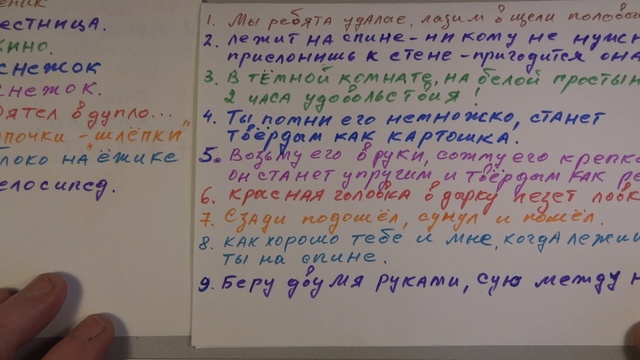 естница.
снежок
снежок.
дупло...
шлёпки"
на ёжике
1. Мы ребята удалые, лазим в щели
2. лежит на спине - никому не
прислонишь к стене - пригодится она
3. В тёмной комнате, на белой
2 часа удовольствия!
4. Ты помни его немножко, станет
твёрдым как картошка.
5. Возьму его в руки, сожму его
он станет упругим и твёрдым как
6. Красная головка в дырку лезет
7. Сзади подошёл, сунул и пошёл.
8. как хорошо тебе и мне, когда
ты на спине.
9. Беру двумя руками, сую между